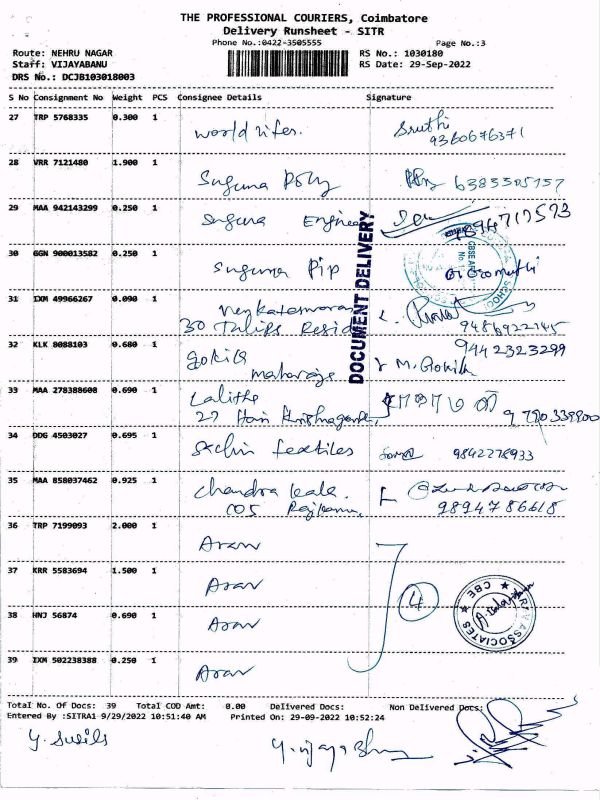 THE PROFESSIONAL COURIERS, Coimbatore
Delivery Runsheet - SITR
Phone No.:0422-3505555 Page No.:3
Route: NEHRU NAGAR RS No.: 1030180
Staff: VIJAYABANU RS Date: 29-Sep-2022
DRS No.: DCJB103018003
S No Consignment No Weight PCS Consignee Details Signature
27 TRP 5768335 0.300 1 Sruthi
9360676371
28 VRR 7121480 1.900 1 Suguna Poly 6383505157
29 MAA 942143299 0.250 1 Suguna Enginee
30 GGN 900013582 0.250 1 Suguna Pip G. Gomathi
31 IXM 49966267 0.090 1
30 Tulips Resid 9486922145
32 KLK 8088103 0.680 1 gokila 9442323299
M. Gokila
33 MAA 278388608 0.690 1 Lalitha
27
34 DDG 4503027 0.695 1 Sachin textiles 9842278933
35 MAA 858037462 0.925 1 Chandra kala.
9894786618
36 TRP 7199093 2.000 1 Aran
37 KRR 5583694 1.500 1 Aran
4
38 HNJ 56874 0.690 1 Aran
39 IXM 502238388 0.250 1 Aran
DOCUMENT DELIVERY
ASSOCIATES ★ CBE ★
Total No. Of Docs: 39 Total COD Amt: 0.00 Delivered Docs: Non Delivered Docs:
Entered By :SITRA1 9/29/2022 10:51:40 AM Printed On: 29-09-2022 10:52:24